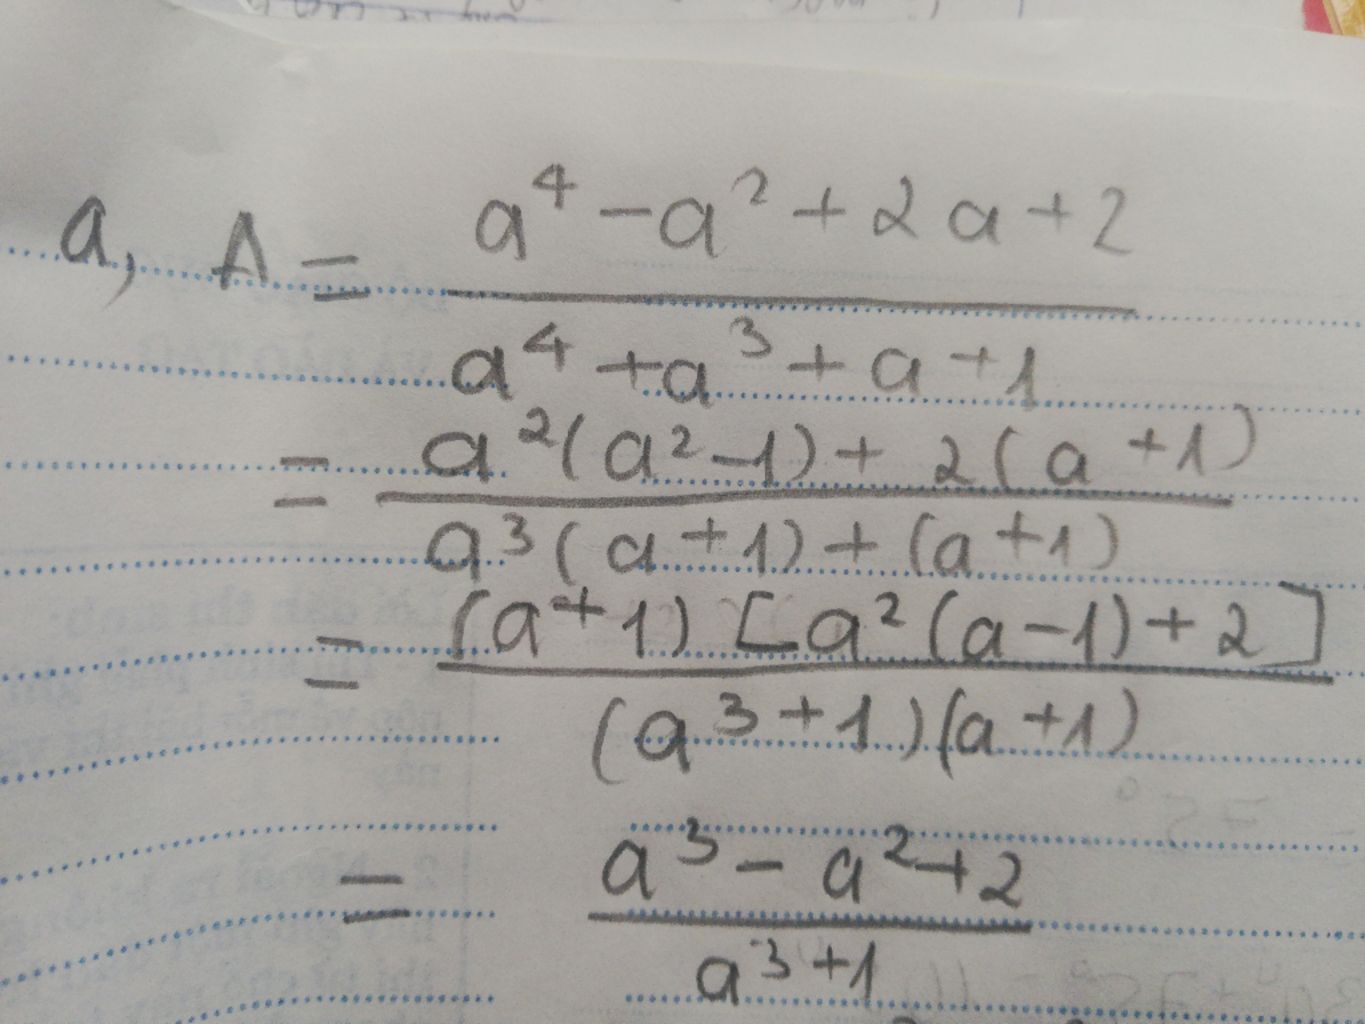 a, A = \frac{a^4 - a^2 + 2a + 2}{a^4 + a^3 + a + 1}
= \frac{a^2(a^2 - 1) + 2(a + 1)}{a^3(a + 1) + (a + 1)}
= \frac{(a + 1)[a^2(a - 1) + 2]}{(a^3 + 1)(a + 1)}
= \frac{a^3 - a^2 + 2}{a^3 + 1}